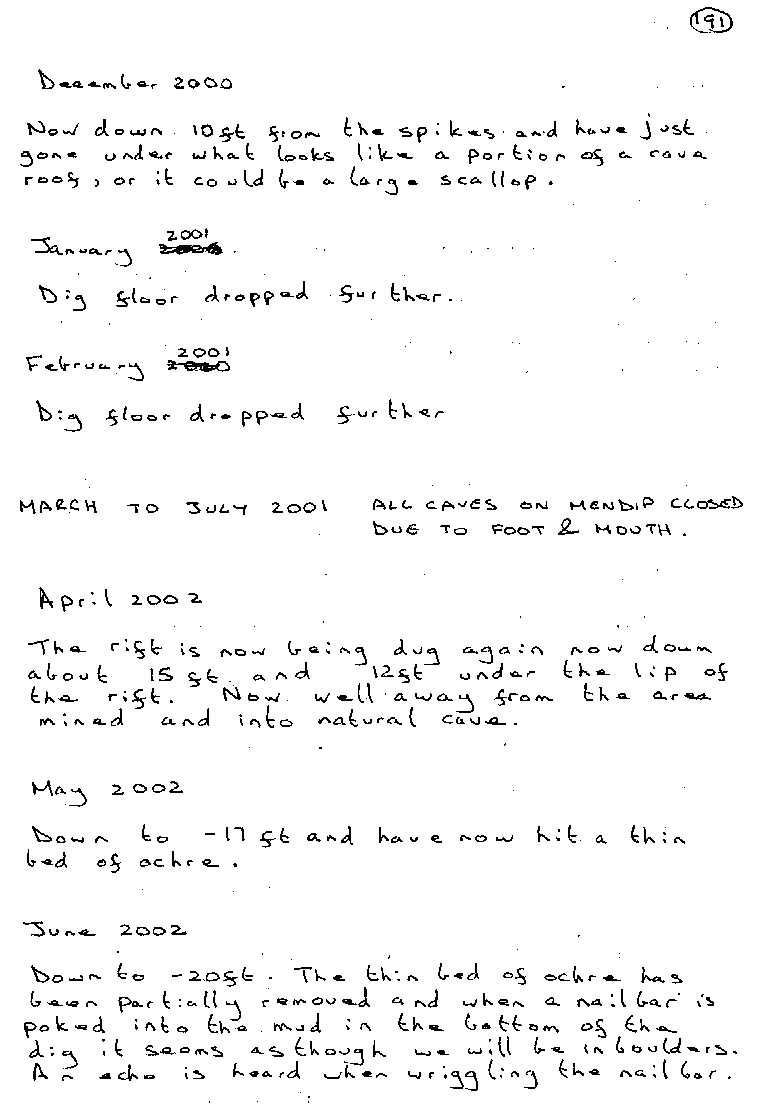 191
December 2000
Now down 10ft from the spikes and have just
gone under what looks like a portion of a cave
roof, or it could be a large scallop.
2001
January
Dig floor dropped further.
2001
February 2000
Dig floor dropped further
MARCH TO JULY 2001 ALL CAVES ON MENDIP CLOSED
DUE TO FOOT & MOUTH.
April 2002
The rift is now being dug again now down
about 15 ft and 12ft under the lip of
the rift. Now well away from the area
mined and into natural cave.
May 2002
Down to -17 ft and have now hit a thin
bed of ochre.
June 2002
Down to -20ft. The thin bed of ochre has
been partially removed and when a nail bar is
poked into the mud in the bottom of the
dig it seems as though we will be in boulders.
An echo is heard when wriggling the nail bar.